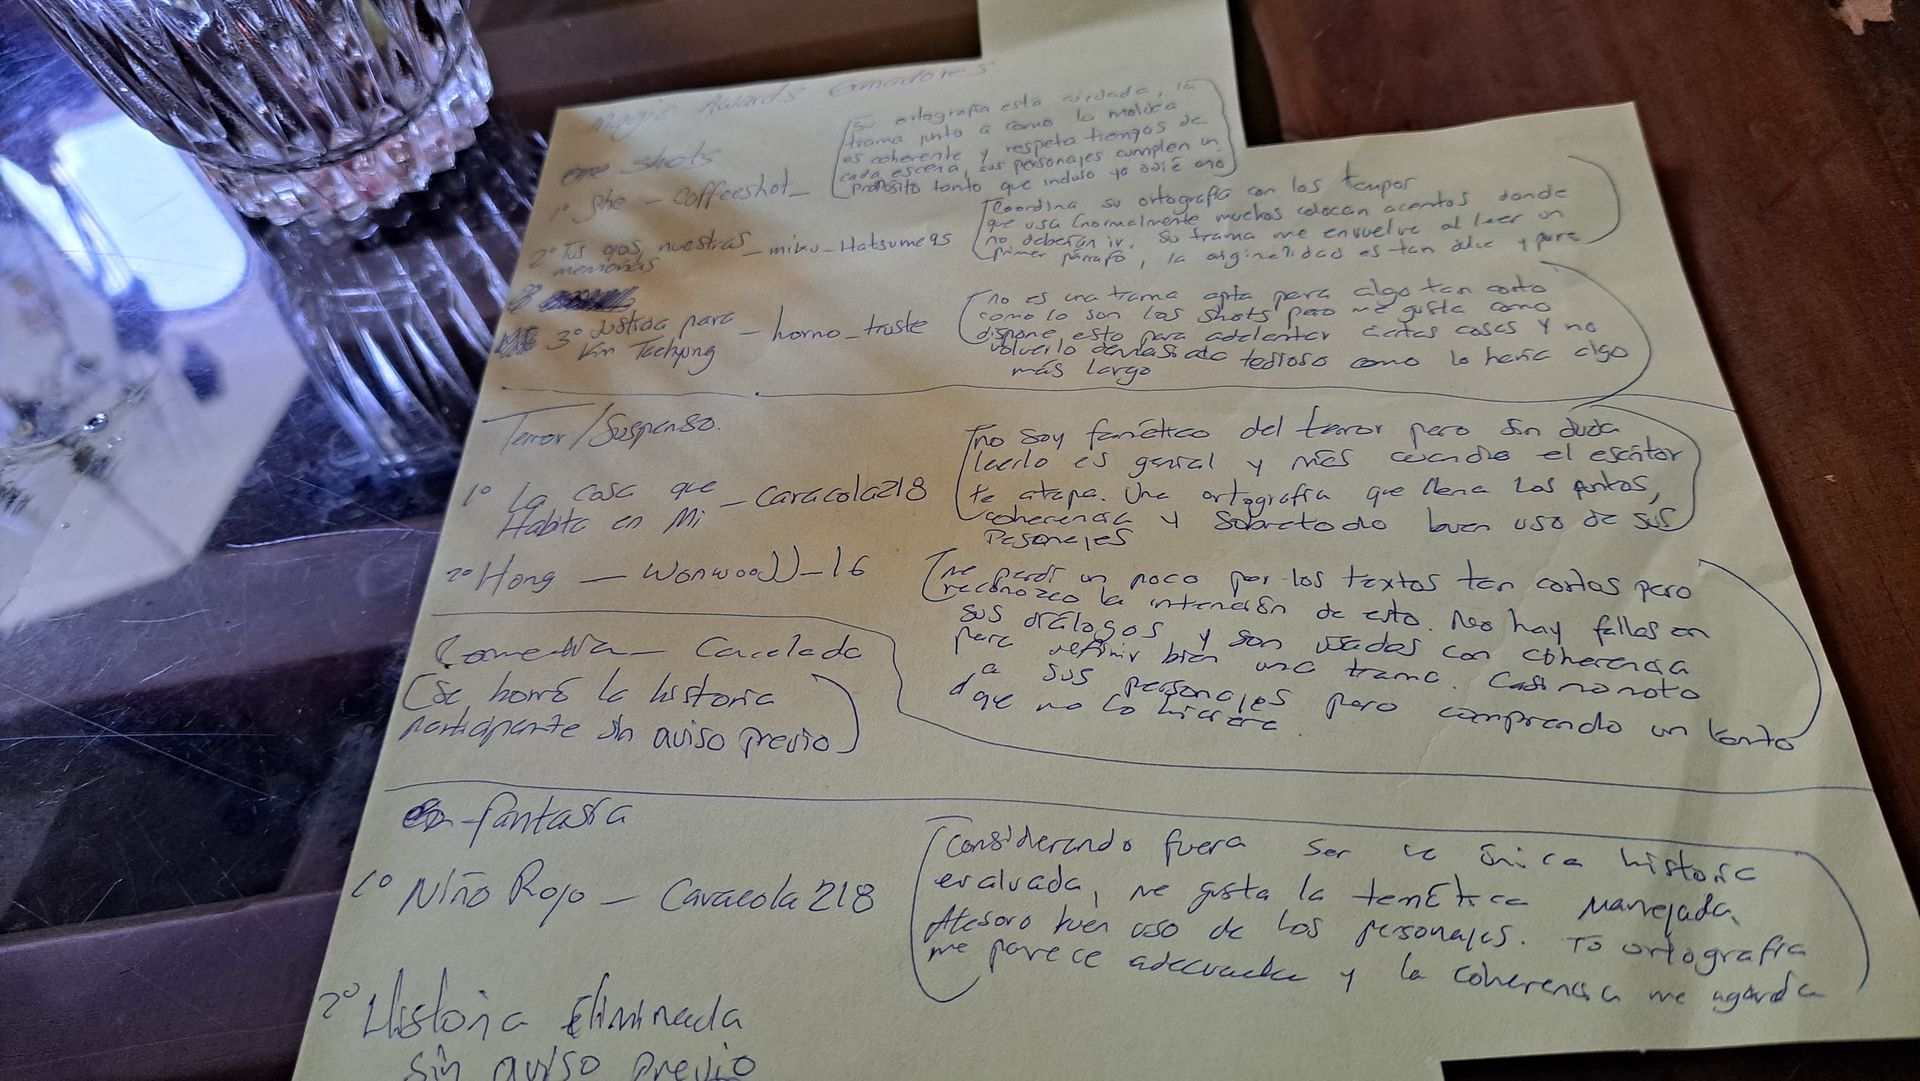 Magic Awards Ganadores
one shots
1° She - Coffeeshot_
(su ortografía esta cuidada, la
trama junto a como la moldea
es coherente y respeta tiempos de
cada escena, sus personajes cumplen un
proposito tanto que incluso yo odié uno
2° Tus ojos, nuestras - miku_Hatsume95
memorias
(Coordina su ortografía con los tempos
que usa (normalmente muchos colocan acentos donde
no deberían ir, su trama me envuelve al leer un
primer parrafo, la originalidad es tan dulce y pura
3° Justicia para - homo_truste
Kim Taehyung
(no es una trama apta para algo tan corto
como lo son los shots pero me gusta como
dispone esto para adelantar ciertas cosas y no
volverlo demasiado tedioso como lo haría algo
más largo
Terror/Suspenso.
1° La cosa que - Caracola218
Habita en Mi
(no soy fanático del terror pero sin duda
leerlo es genial y más cuando el escritor
te atapa. Una ortografía que llena los puntos,
coherencia y sobretodo buen uso de sus
Personajes
2° Hong - Wonwoojj_16
(me perdí un poco por los textos tan cortos pero
reconozco la intención de esto. No hay fallas en
sus diálogos y son usados con coherencia
para definir bien una trama. Casi no noto
a sus personajes pero comprendo un tanto
que no lo hiciera
Comedia - Cancelado
(se borró la historia
participante sin aviso previo)
fantasía
1° Niño Rojo - Caracola218
(Considerando fuera ser la única historia
evaluada, me gusta la temática manejada,
Atesoro buen uso de los personajes. Tu ortografía
me parece adecuada y la coherencia me agarda
2° Historia Eliminada
sin aviso previo